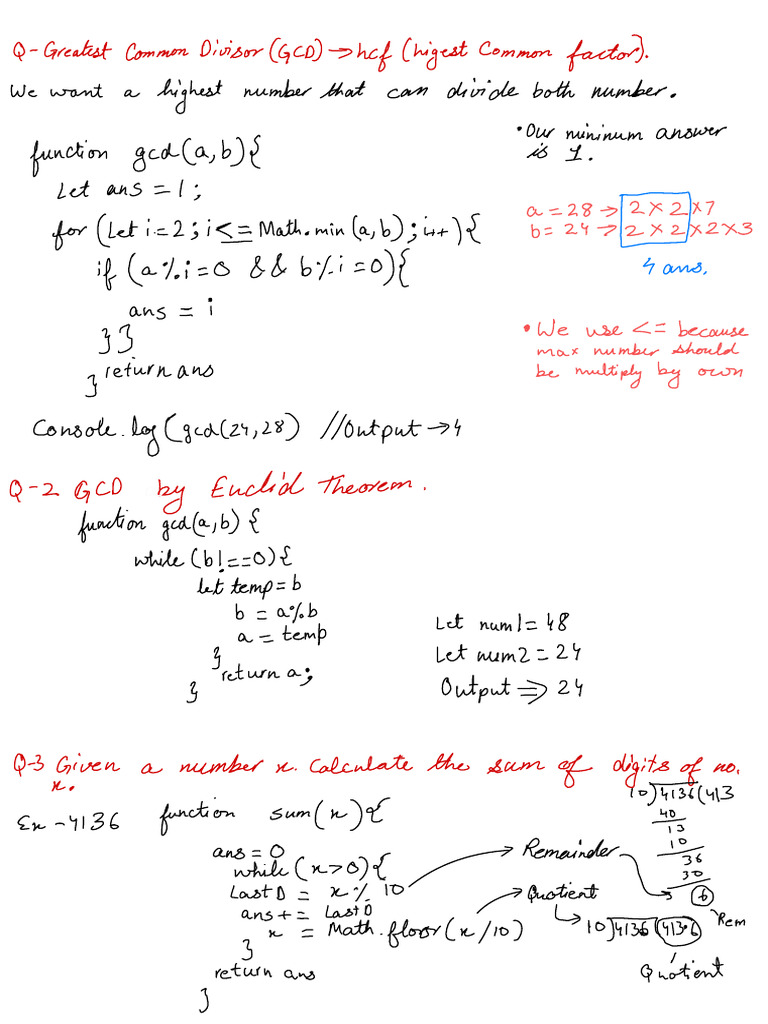 Q- Greatest Common Divisor (GCD) → hcf (higest Common factor).
We want a highest number that can divide both number.
function gcd(a,b){
Let ans = 1;
for (Let i=2; i<=Math.min(a,b); i++){
if (a%i=0 && b%i=0){
ans = i
}}
return ans
}
Console.log(gcd(24,28) //Output → 4
• Our mininum answer
is 1.
a = 28 → 2 x 2 x 7
b = 24 → 2 x 2 x 2 x 3
4 ans.
• We use <= because
max number should
be multiply by own
Q-2 GCD by Euclid Theorem.
function gcd(a,b) {
while (b!==0){
let temp = b
b = a%b
a = temp
}
return a;
}
Let num1 = 48
Let num2 = 24
Output ⇒ 24
Q-3 Given a number x. Calculate the sum of digits of no.
x.
Ex - 4136
function sum(x){
ans = 0
while (x>0){
Last D = x % 10
ans += Last D
x = Math.floor(x/10)
}
return ans
}
Remainder
Quotient
10)4136(413
40
13
10
36
30
6
Rem
10)4136(413.6
Quotient